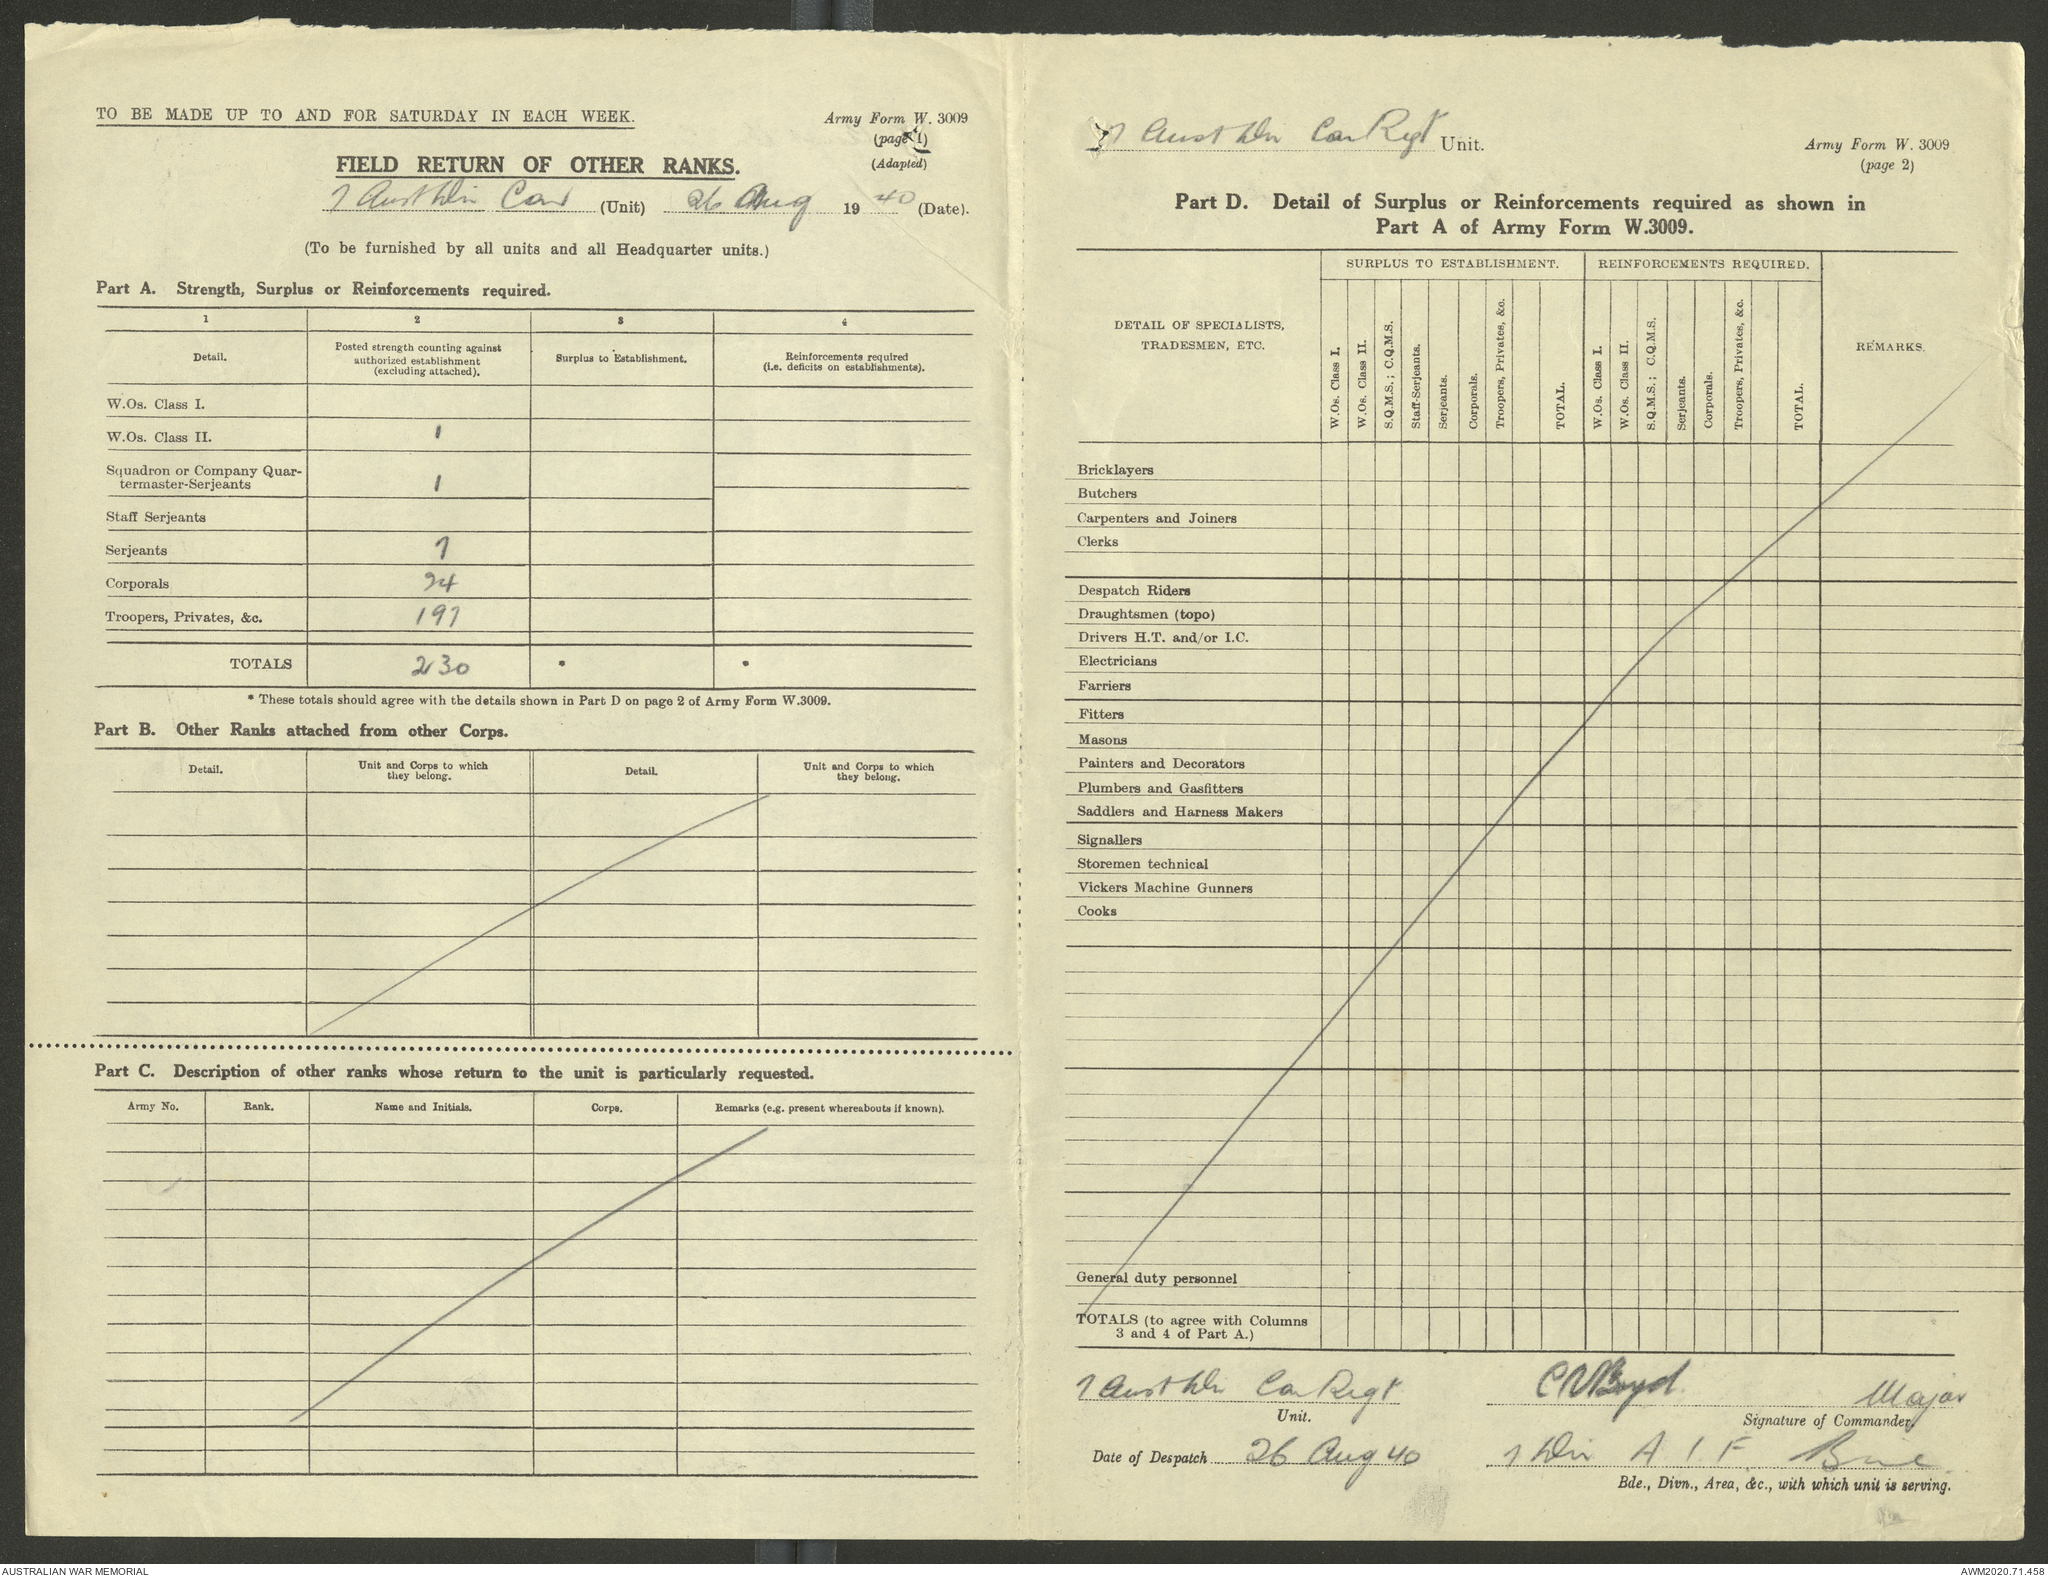 TO BE MADE UP TO AND FOR SATURDAY IN EACH WEEK.
Army Form W. 3009
(page 1)
(Adapted)
FIELD RETURN OF OTHER RANKS.
7 Aust Div Cav (Unit) 26 Aug 1940 (Date).
(To be furnished by all units and all Headquarter units.)
Part A. Strength, Surplus or Reinforcements required.
1 2 3 4
Detail. Posted strength counting against authorized establishment (excluding attached). Surplus to Establishment. Reinforcements required (i.e. deficits on establishments).
W.Os. Class I.
W.Os. Class II. 1
Squadron or Company Quar-
termaster-Serjeants 1
Staff Serjeants
Serjeants 7
Corporals 24
Troopers, Privates, &c. 197
TOTALS 230 * *
* These totals should agree with the details shown in Part D on page 2 of Army Form W.3009.
Part B. Other Ranks attached from other Corps.
Detail. Unit and Corps to which they belong. Detail. Unit and Corps to which they belong.
Part C. Description of other ranks whose return to the unit is particularly requested.
Army No. Rank. Name and Initials. Corps. Remarks (e.g. present whereabouts if known).
7 Aust Div Cav Regt Unit.
Army Form W. 3009
(page 2)
Part D. Detail of Surplus or Reinforcements required as shown in
Part A of Army Form W.3009.
DETAIL OF SPECIALISTS, TRADESMEN, ETC.
SURPLUS TO ESTABLISHMENT. REINFORCEMENTS REQUIRED.
REMARKS.
W.Os. Class I.
W.Os. Class II.
S.Q.M.S.; C.Q.M.S.
Staff-Serjeants.
Serjeants.
Corporals.
Troopers, Privates, &c.
TOTAL.
W.Os. Class I.
W.Os. Class II.
S.Q.M.S.; C.Q.M.S.
Serjeants.
Corporals.
Troopers, Privates, &c.
TOTAL.
Bricklayers
Butchers
Carpenters and Joiners
Clerks
Despatch Riders
Draughtsmen (topo)
Drivers H.T. and/or I.C.
Electricians
Farriers
Fitters
Masons
Painters and Decorators
Plumbers and Gasfitters
Saddlers and Harness Makers
Signallers
Storemen technical
Vickers Machine Gunners
Cooks
General duty personnel
TOTALS (to agree with Columns
3 and 4 of Part A.)
7 Aust Div Cav Regt
Unit.
Boyd Major
Signature of Commander.
Date of Despatch 26 Aug 40
7 Div A.I.F.
Bde., Divn., Area, &c., with which unit is serving.
AUSTRALIAN WAR MEMORIAL
AWM2020.71.458